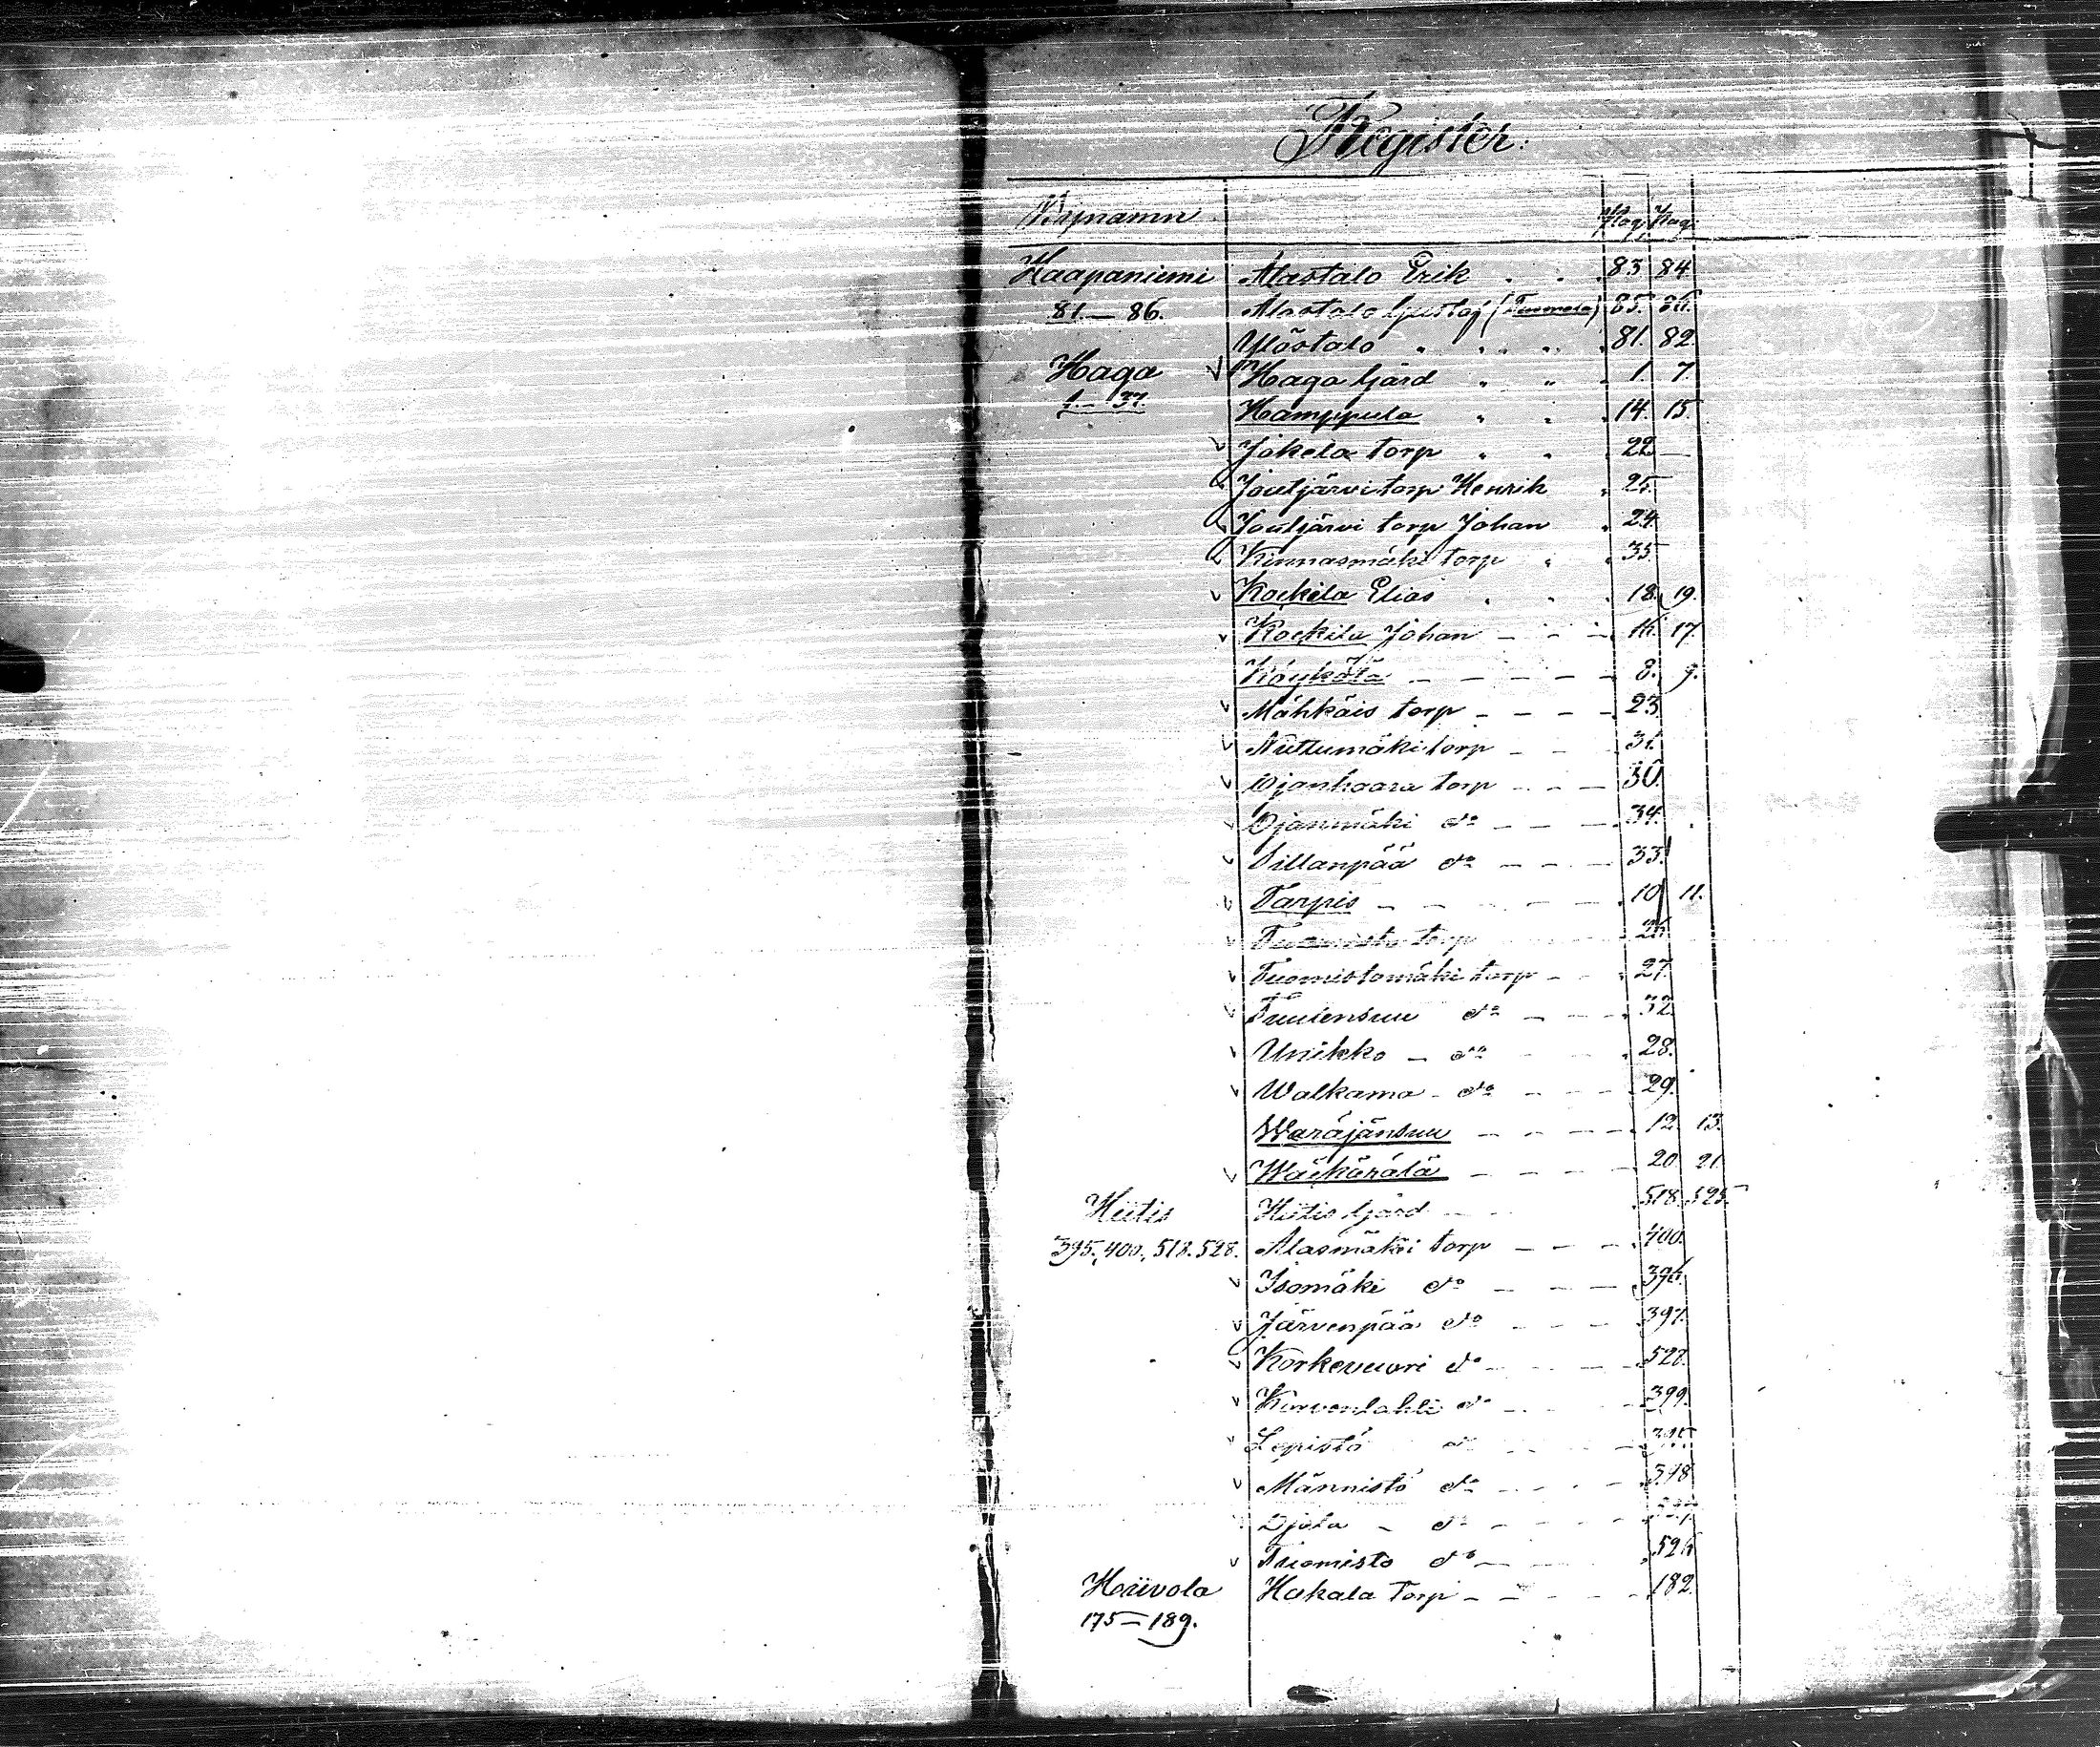 Register.
Bynamn Pag. Pag.
Haapaniemi Alastalo Erik . . . 83. 84.
81.—86. Alastalo Gustaf (Tuomola) 85. 86.
Ylöstalo . . . . 81. 82.
Haga Haga Gård . . . 1. 7.
1.—37. Hamppula . . . 14. 15.
Jokela torp . . . 22. —
Joutjärvi torp Henrik . 25.
Joutjärvi torp Johan . 24.
Kinnasmäki torp . . 35.
Kockila Elias . . . 18. 19.
Kockila Johan — — — 16. 17.
Köykölä — — — — — 8. 9.
Mähkäis torp — — — — 23.
Nuttumäki torp — — — 31.
Ojanhaara torp — — — 30.
Ojanmäki do — — — 34.
Sillanpää do — — — 33.
Tarpis — — — — — 10. 11.
Tuomisto torp 26.
Tuomistomäki torp — — 27.
Tuuiensuu do — — — 32.
Unikko — do — — — 28.
Walkama — do — — — 29.
Waräjänsuu — — — — 12. 13.
Wäckärälä — — — — 20. 21.
Hiitis Hiitis Gård — — 518. 525.
395, 400, 518. 528. Alasmäki torp — — — 400.
Isomäki do — — — 396.
Järvenpää do — — — 397.
Korkevuori do — — — 528.
Korvenlahti do — — — 399.
Lepistö do — — — 395.
Männistö do — — — 398.
Ojala — do — — —
Tuomisto do — — — 526.
Hoivola Hakala torp — — — 182.
175—189.